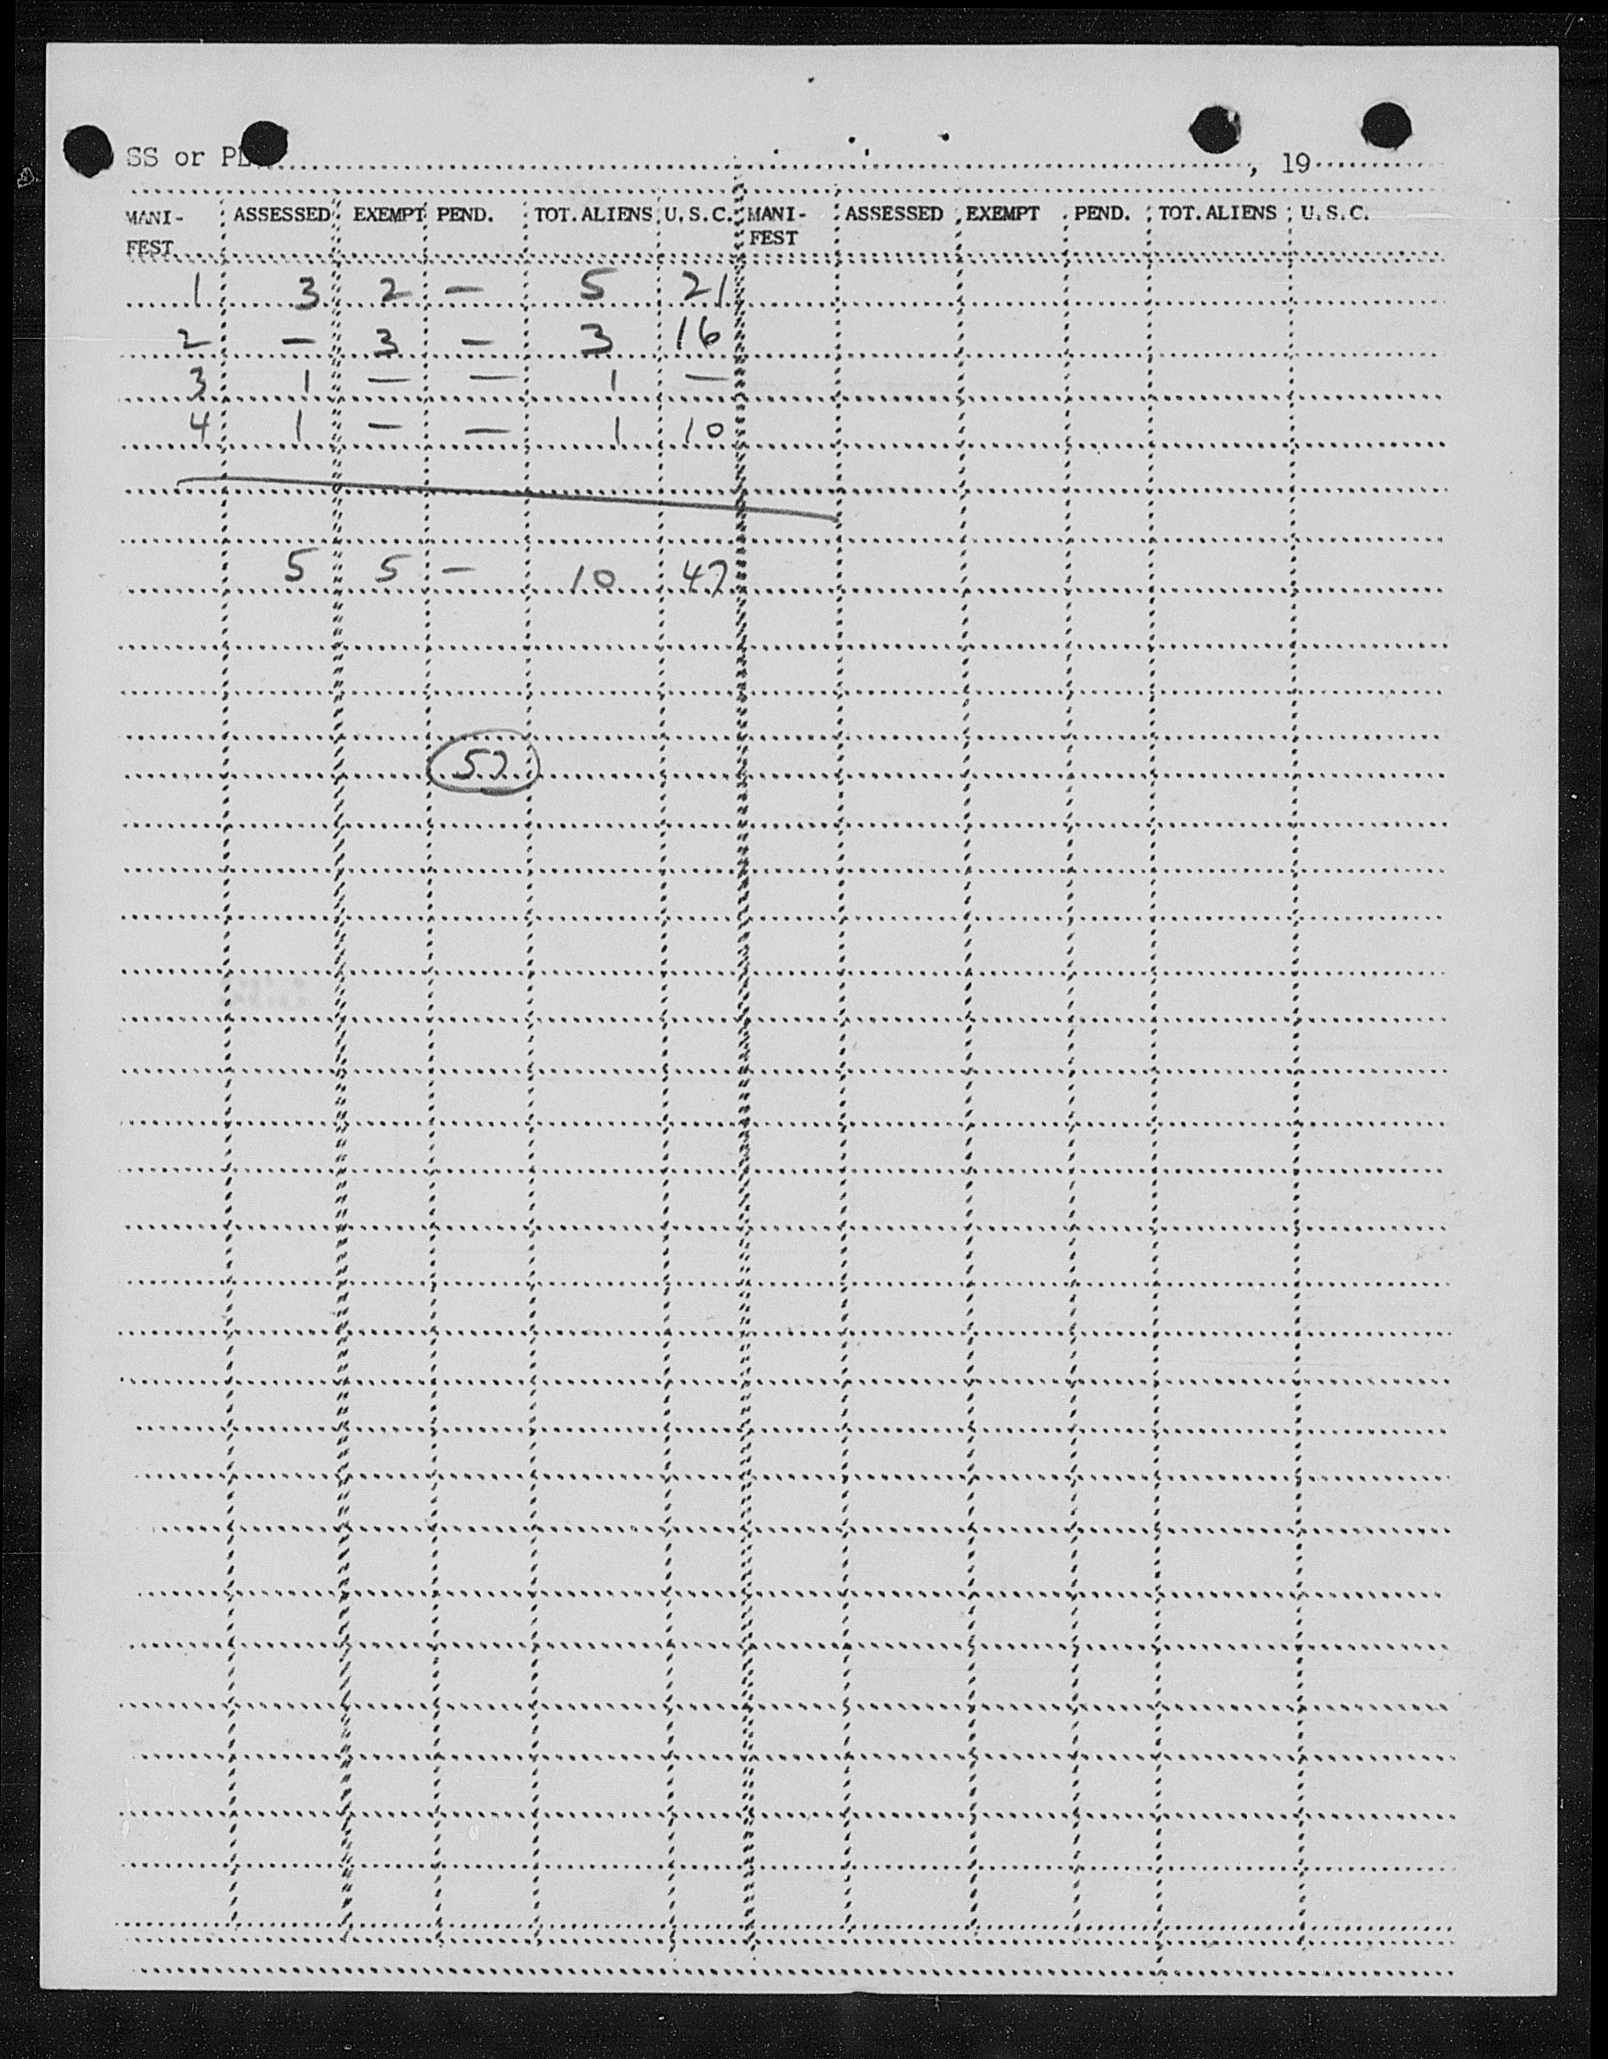 SS or PL , 19
MANI-FEST ASSESSED EXEMPT PEND. TOT. ALIENS U.S.C. MANI-FEST ASSESSED EXEMPT PEND. TOT. ALIENS U.S.C.
1 3 2 — 5 21
2 — 3 — 3 16
3 1 — — 1 —
4 1 — — 1 10
5 5 — 10 47
57